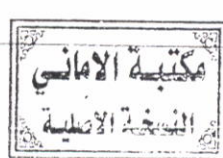 مكتبة الاماني
النسخة الأصلية